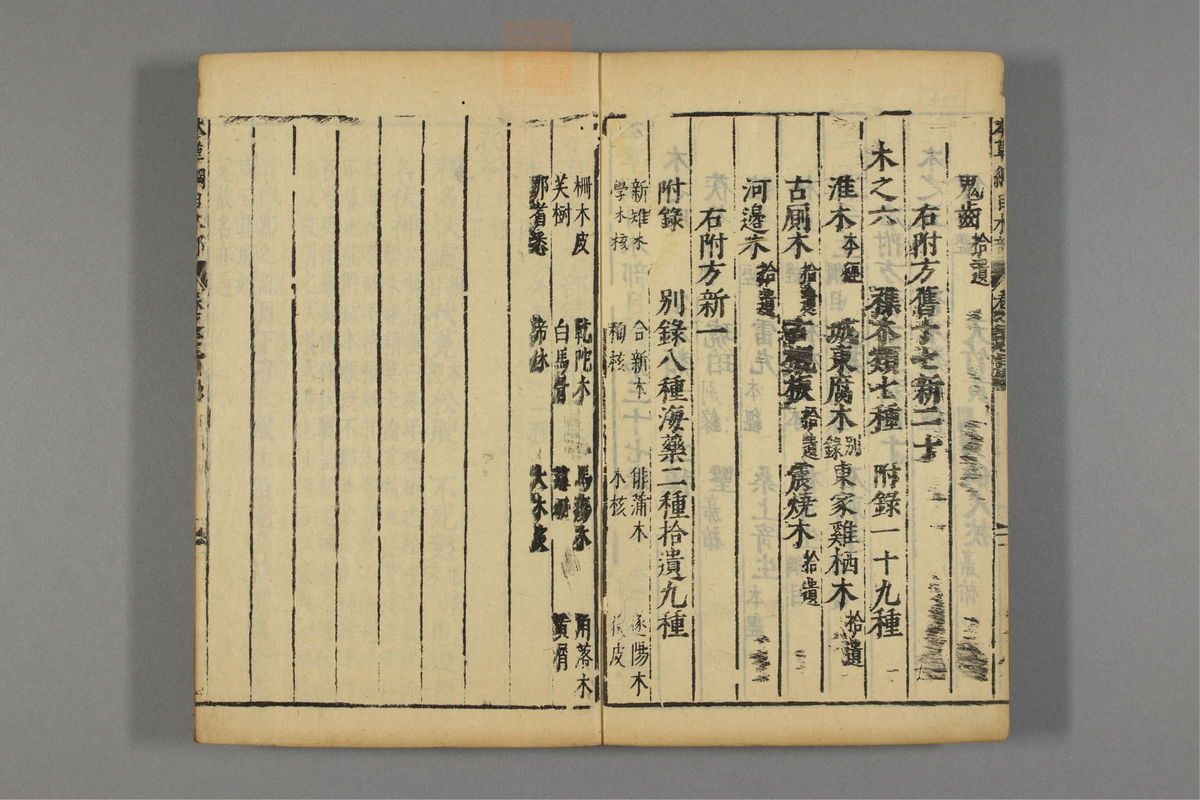 鬼齒拾遺
右附方舊十七新二十
木之六 雜木類七種 附錄一十九種
淮木本經 城東腐木別錄 東家雞栖木拾遺
古厠木拾遺 古櫬板拾遺 震燒木拾遺
河邊木拾遺
右附方新一
附錄 別錄八種海藥二種拾遺九種
新雉木 合新木 俳蒲木 遂陽木
學木核 栒核 木核 荻皮
柵木皮 乾陀木 馬瘍木 角落木
芙樹 白馬骨 慈母 黃屑
那耆悉 帝休 大木皮